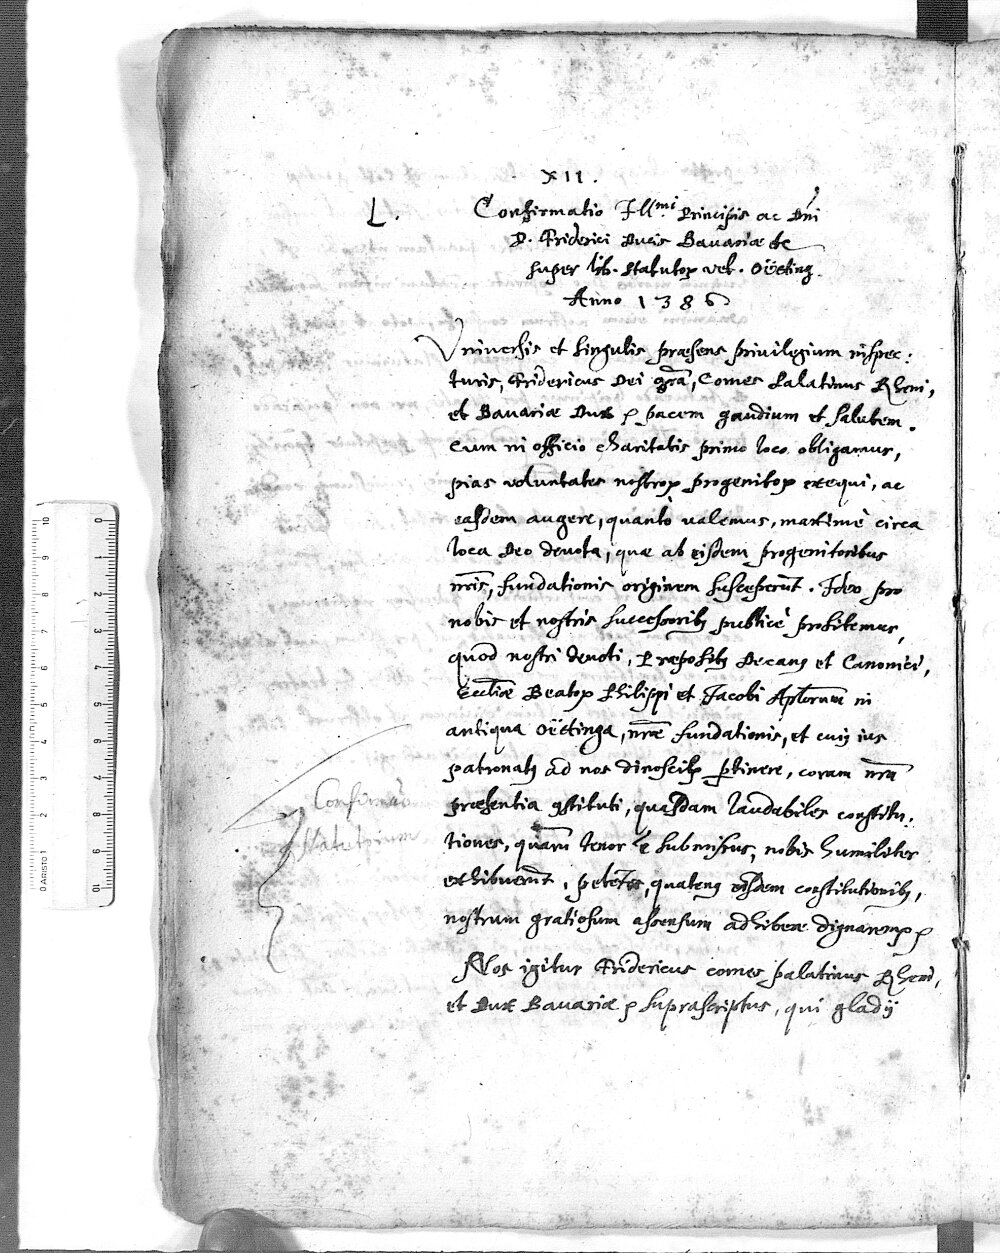 XII.
L. Confirmatio Ill.mi Principis ac Dni
D. Friderici Ducis Bavariæ etc
super lib. Statutoꝝ vet. Oëting.
Anno 1386
Universis et singulis præsens privilegium inspec:
turis, Fridericus Dei grã, Comes Palatinus Rheni,
et Bavariæ Dux ꝛ pacem gaudium et salutem.
Cum in officio charitatis primo loco obligamur,
pias voluntates nostroꝝ progenitoꝝ exequi, ac
easdem augere, quantò valemus, maximè circa
loca Deo devota, quæ ab eisdem progenitoribus
nr̃is, fundationis originem susceperũt. Ideo pro
nobis et nostris successoribꝰ publicè profitemur,
quod nostri devoti, Præpositꝰ Decanꝰ et Canonici,
Eccl̃iæ Beatoꝝ Philippi et Jacobi Apl̃orum in
antiqua Oëttinga, nr̃æ fundationis, et cuiꝰ ius
patronatꝰ ad nos dinoscitꝛ ꝑtinere, coram nr̃a
præsentia ꝯstituti, quasdam laudabiles constitu:
tiones, quarũ tenor ẽ submissus, nobis humiliter
exhibuerũt, petẽtes, quatenꝰ eisdem constitutionibꝰ,
nostrum gratiosum assensum adhibere dignaremꝝ ꝛ
Nos igitur Fridericus comes palatinus Rheni,
et Dux Bavariæ ꝛ suprascriptus, qui gladij
Confirmaõ
Statutorum
0 1 2 3 4 5 6 7 8 9 10
10 9 8 7 6 5 4 3 2 1 0 ARISTO